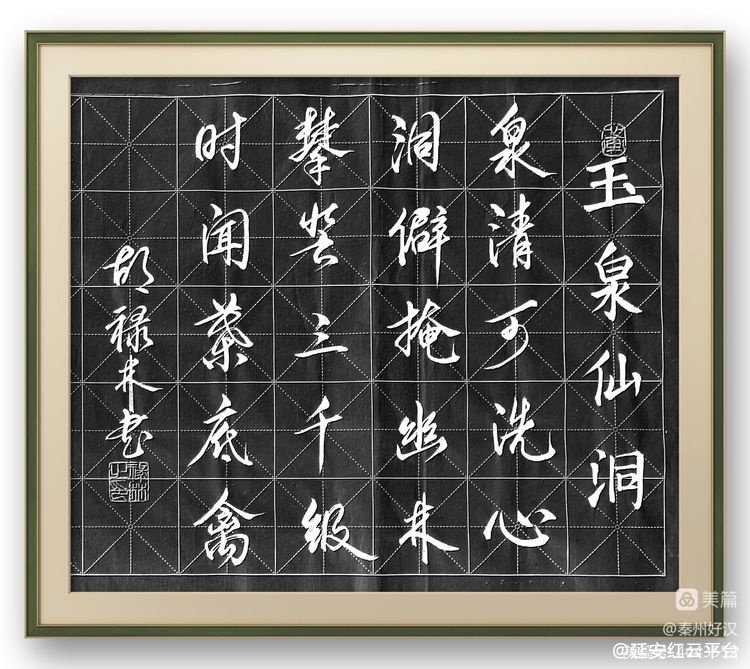 玉泉仙洞
泉清可洗心
洞僻掩幽林
攀登三千级
时闻葉底禽
胡禄林书
美篇
@秦州好汉
@延安红云平台